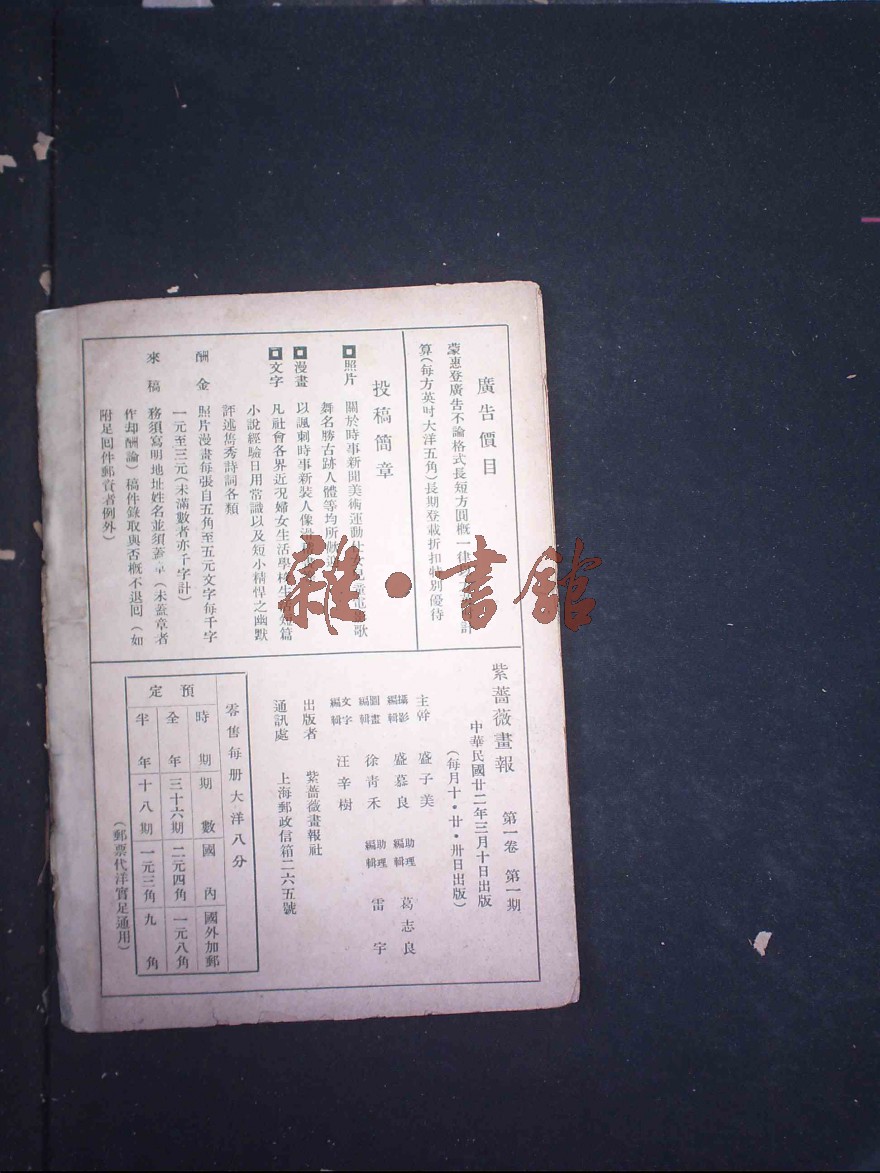 廣告價目
蒙惠登廣告不論格式長短方圓概一律 計
算(每方英吋大洋五角)長期登載折扣特別優待
投稿簡章
照片 關於時事新聞美術運動 歌
舞名勝古跡人體等均所
漫畫 以諷刺時事新裝人像
文字 凡社會各界近况婦女生活學校生活短篇
小說經驗日用常識以及短小精悍之幽默
評述雋秀詩詞各類
酬金 照片漫畫每張自五角至五元文字每千字
一元至三元(未滿數者亦千字計)
來稿 務須寫明地址姓名並須蓋章(未蓋章者
作却酬論)稿件錄取與否概不退回(如
附足囘件郵資者例外)
紫薔薇畫報 第一卷 第一期
中華民國廿二年三月十日出版
(每月十·廿·卅日出版)
主幹 盛子美
攝影編輯 盛慕良 助理編輯 葛志良
圖畫編輯 徐青禾 助理編輯 雷宇
文字編輯 汪辛樹
出版者 紫薔薇畫報社
通訊處 上海郵政信箱二六五號
零售每册大洋八分
預定
時期 期數 國內 國外加郵
全年 三十六期 二元四角 一元八角
半年 十八期 一元三角 九角
(郵票代洋實足通用)
雜·書館